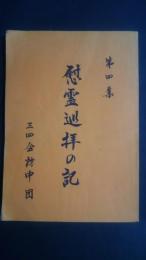 第四集
慰霊巡拝の記
三四会訪中団